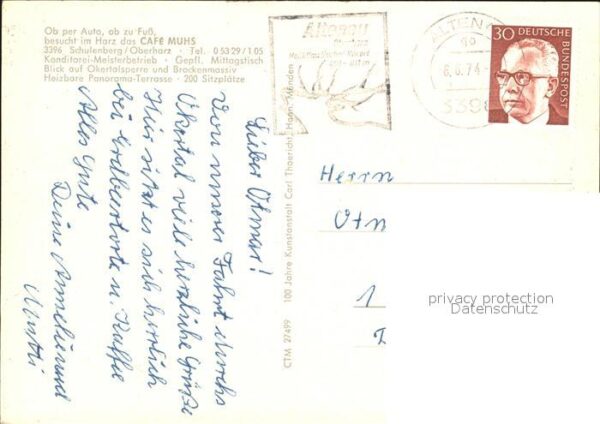 Ob per Auto, ob zu Fuß,
besucht im Harz das CAFÉ MUHS
3396 Schulenberg/Oberharz · Tel. 0 53 29/1 05
Konditorei-Meisterbetrieb · Gepfl. Mittagstisch
Blick auf Okertalsperre und Brockenmassiv
Heizbare Panorama-Terrasse · 200 Sitzplätze
Altenau
ALTENAU
6.6.74
3396
30 DEUTSCHE
BUNDESPOST
Lieber Otmar!
Von unserer Fahrt durchs
Okertal viele herzliche Grüße
Hier sitzt es sich herrlich
bei Erdbeertorte u. Kaffee
Alles Gute
Deine Anneli und
Mutti
CTM 27499 100 Jahre Kunstanstalt Carl Thoericht, Hann. Münden
Herrn
Otm
1
privacy protection
Datenschutz